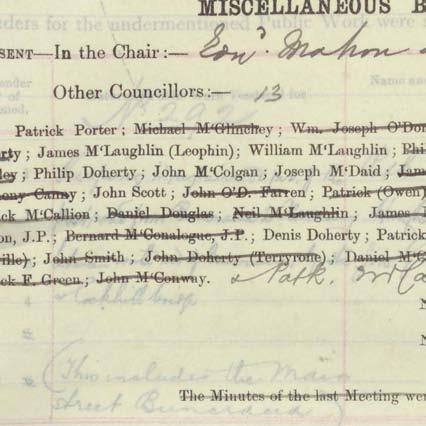 MISCELLANEOUS B
ders for the undermentioned Public Work were
ESENT—In the Chair:— Edwd. Mahon
Other Councillors:— 13
Patrick Porter; Michael M'Glinchey; Wm. Joseph O'Don
rty; James M'Laughlin (Leophin); William M'Laughlin; Phi
ley; Philip Doherty; John M'Colgan; Joseph M'Daid; Jam
ony Canny; John Scott; John O'D. Farren; Patrick (Owen)
ick M'Callion; Daniel Douglas; Neil M'Laughlin; James
on, J.P.; Bernard M'Conalogue, J.P.; Denis Doherty; Patric
ville); John Smith; John Doherty (Terryrone); Daniel M'C
ick F. Green; John M'Conway. & Patk.
(This includes the Main
Street Buncrana)
The Minutes of the last Meeting wer